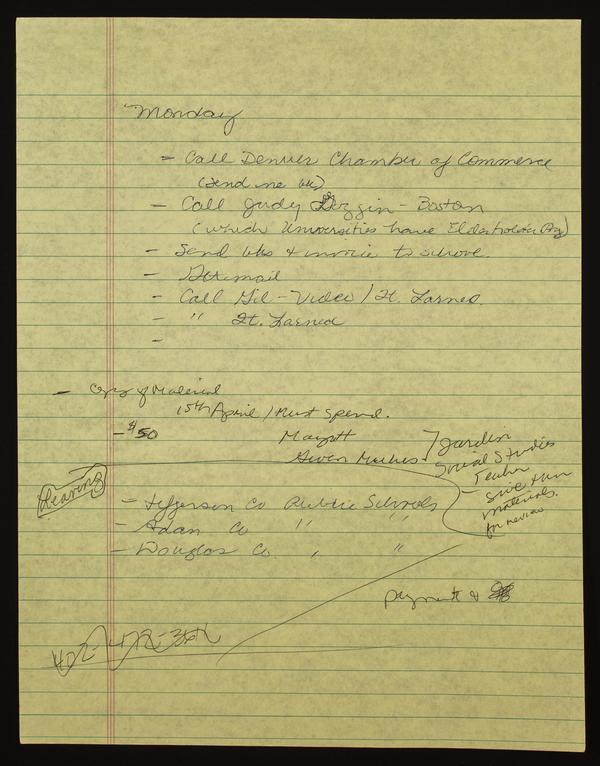 Monday
- Call Denver Chamber of Commerce
(Send me bk)
- Call Judy - Boston
(which Universities have Elderhostel
- Send bks & invoice to school.
- Get mail
- Call Gil - Video / Ft. Larned.
- " Ft. Larned
-
- Copy of Material
15th April / Must Spend.
- $50
Gwen
Jardin
Social Studies
Teacher
- Give them
materials
for review
Leaving
- Jefferson Co Public Schools
- Adam Co " "
- Douglas Co. " "
payment &